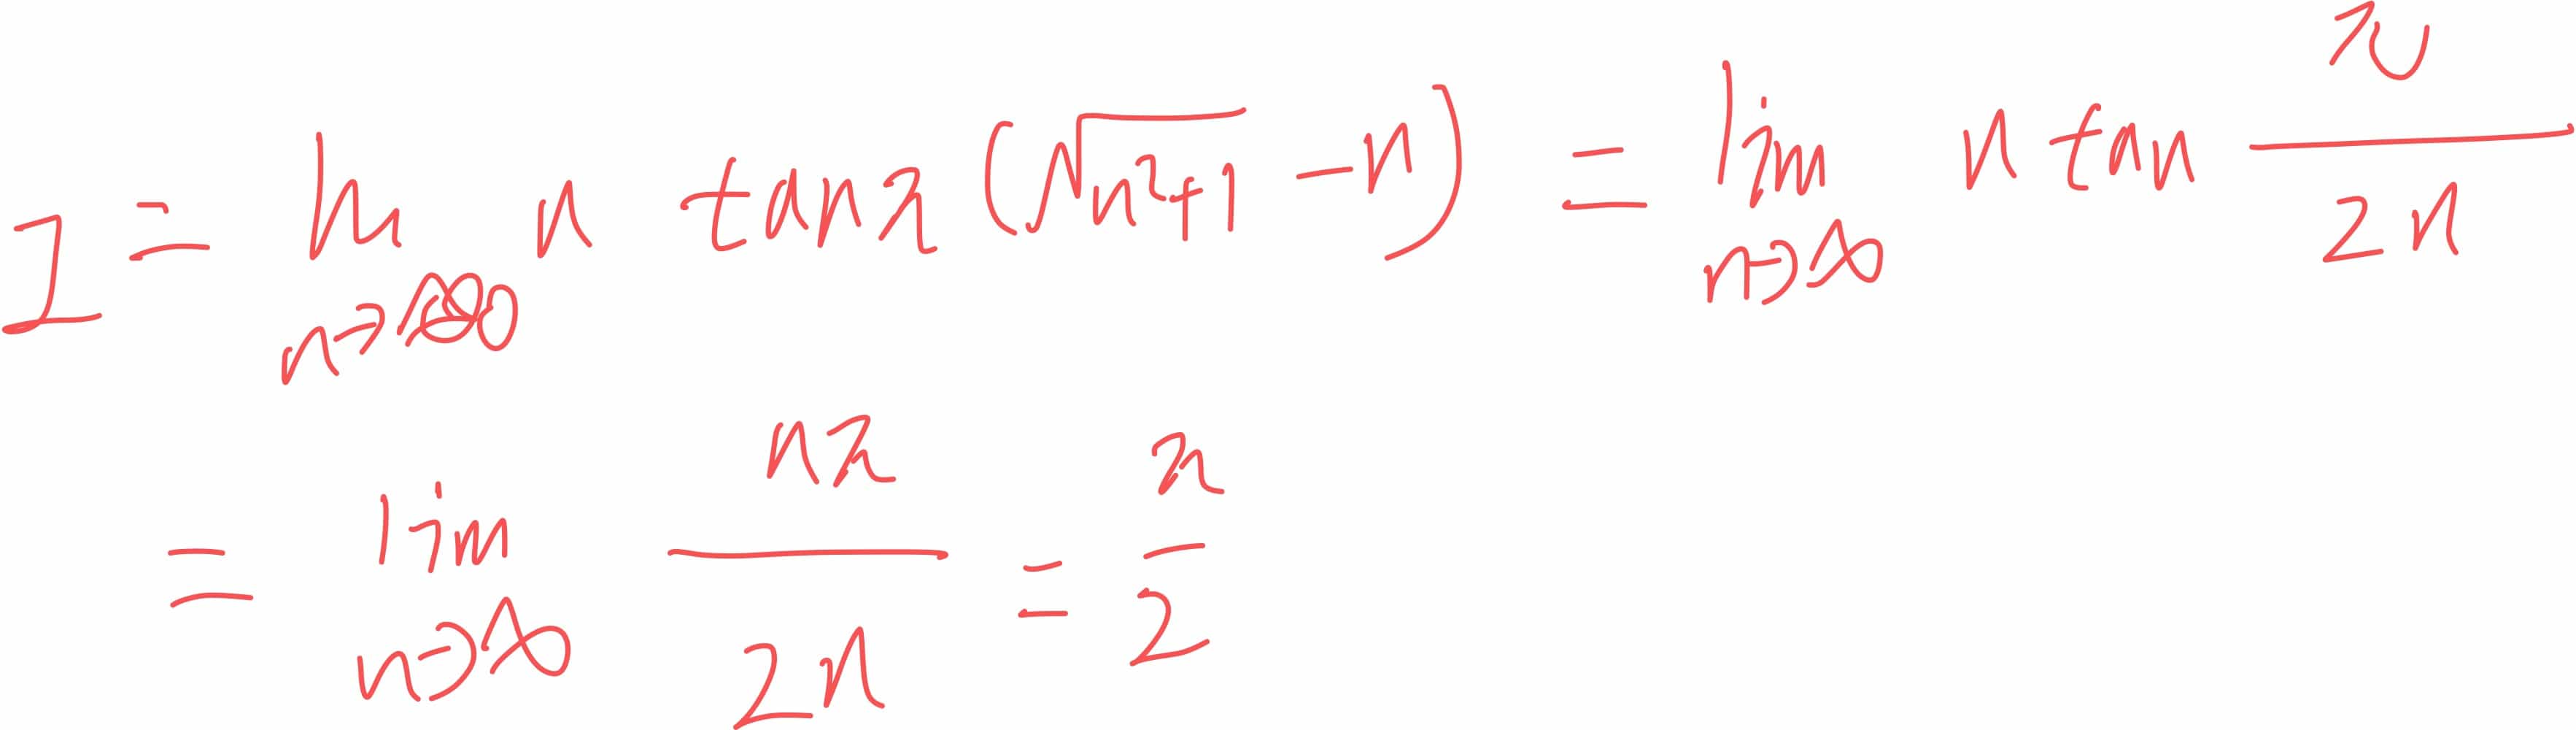 I = lim n→∞ n tan π (√(n²+1) − n) = lim n→∞ n tan π/2n
= lim n→∞ nπ/2n = π/2